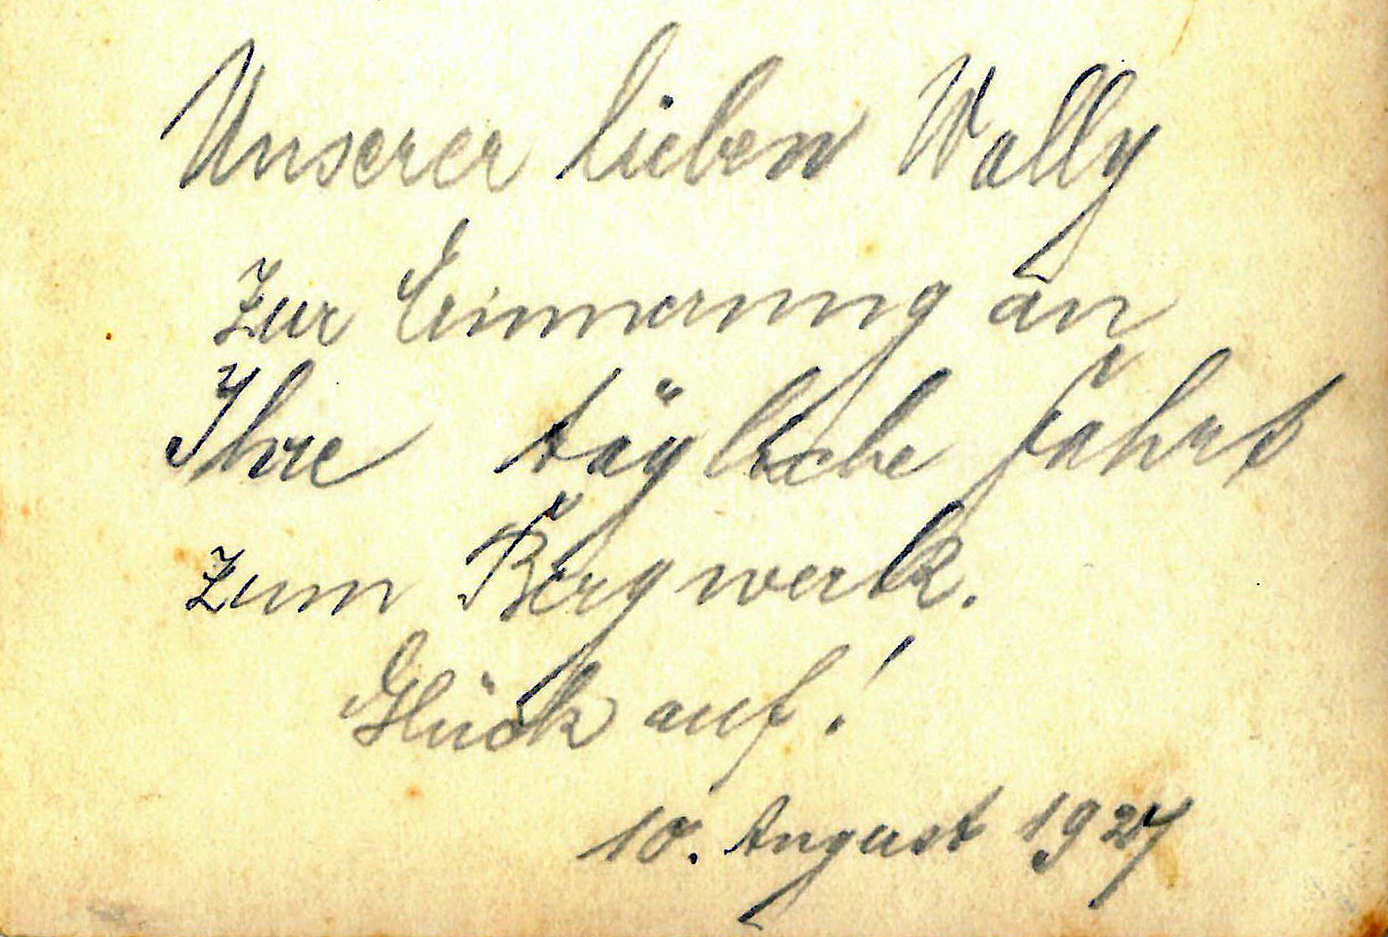 Unserer lieben Wally
zur Erinnerung an
Ihre tägliche Fahrt
zum Bergwerk.
Glück auf!
10. August 1927